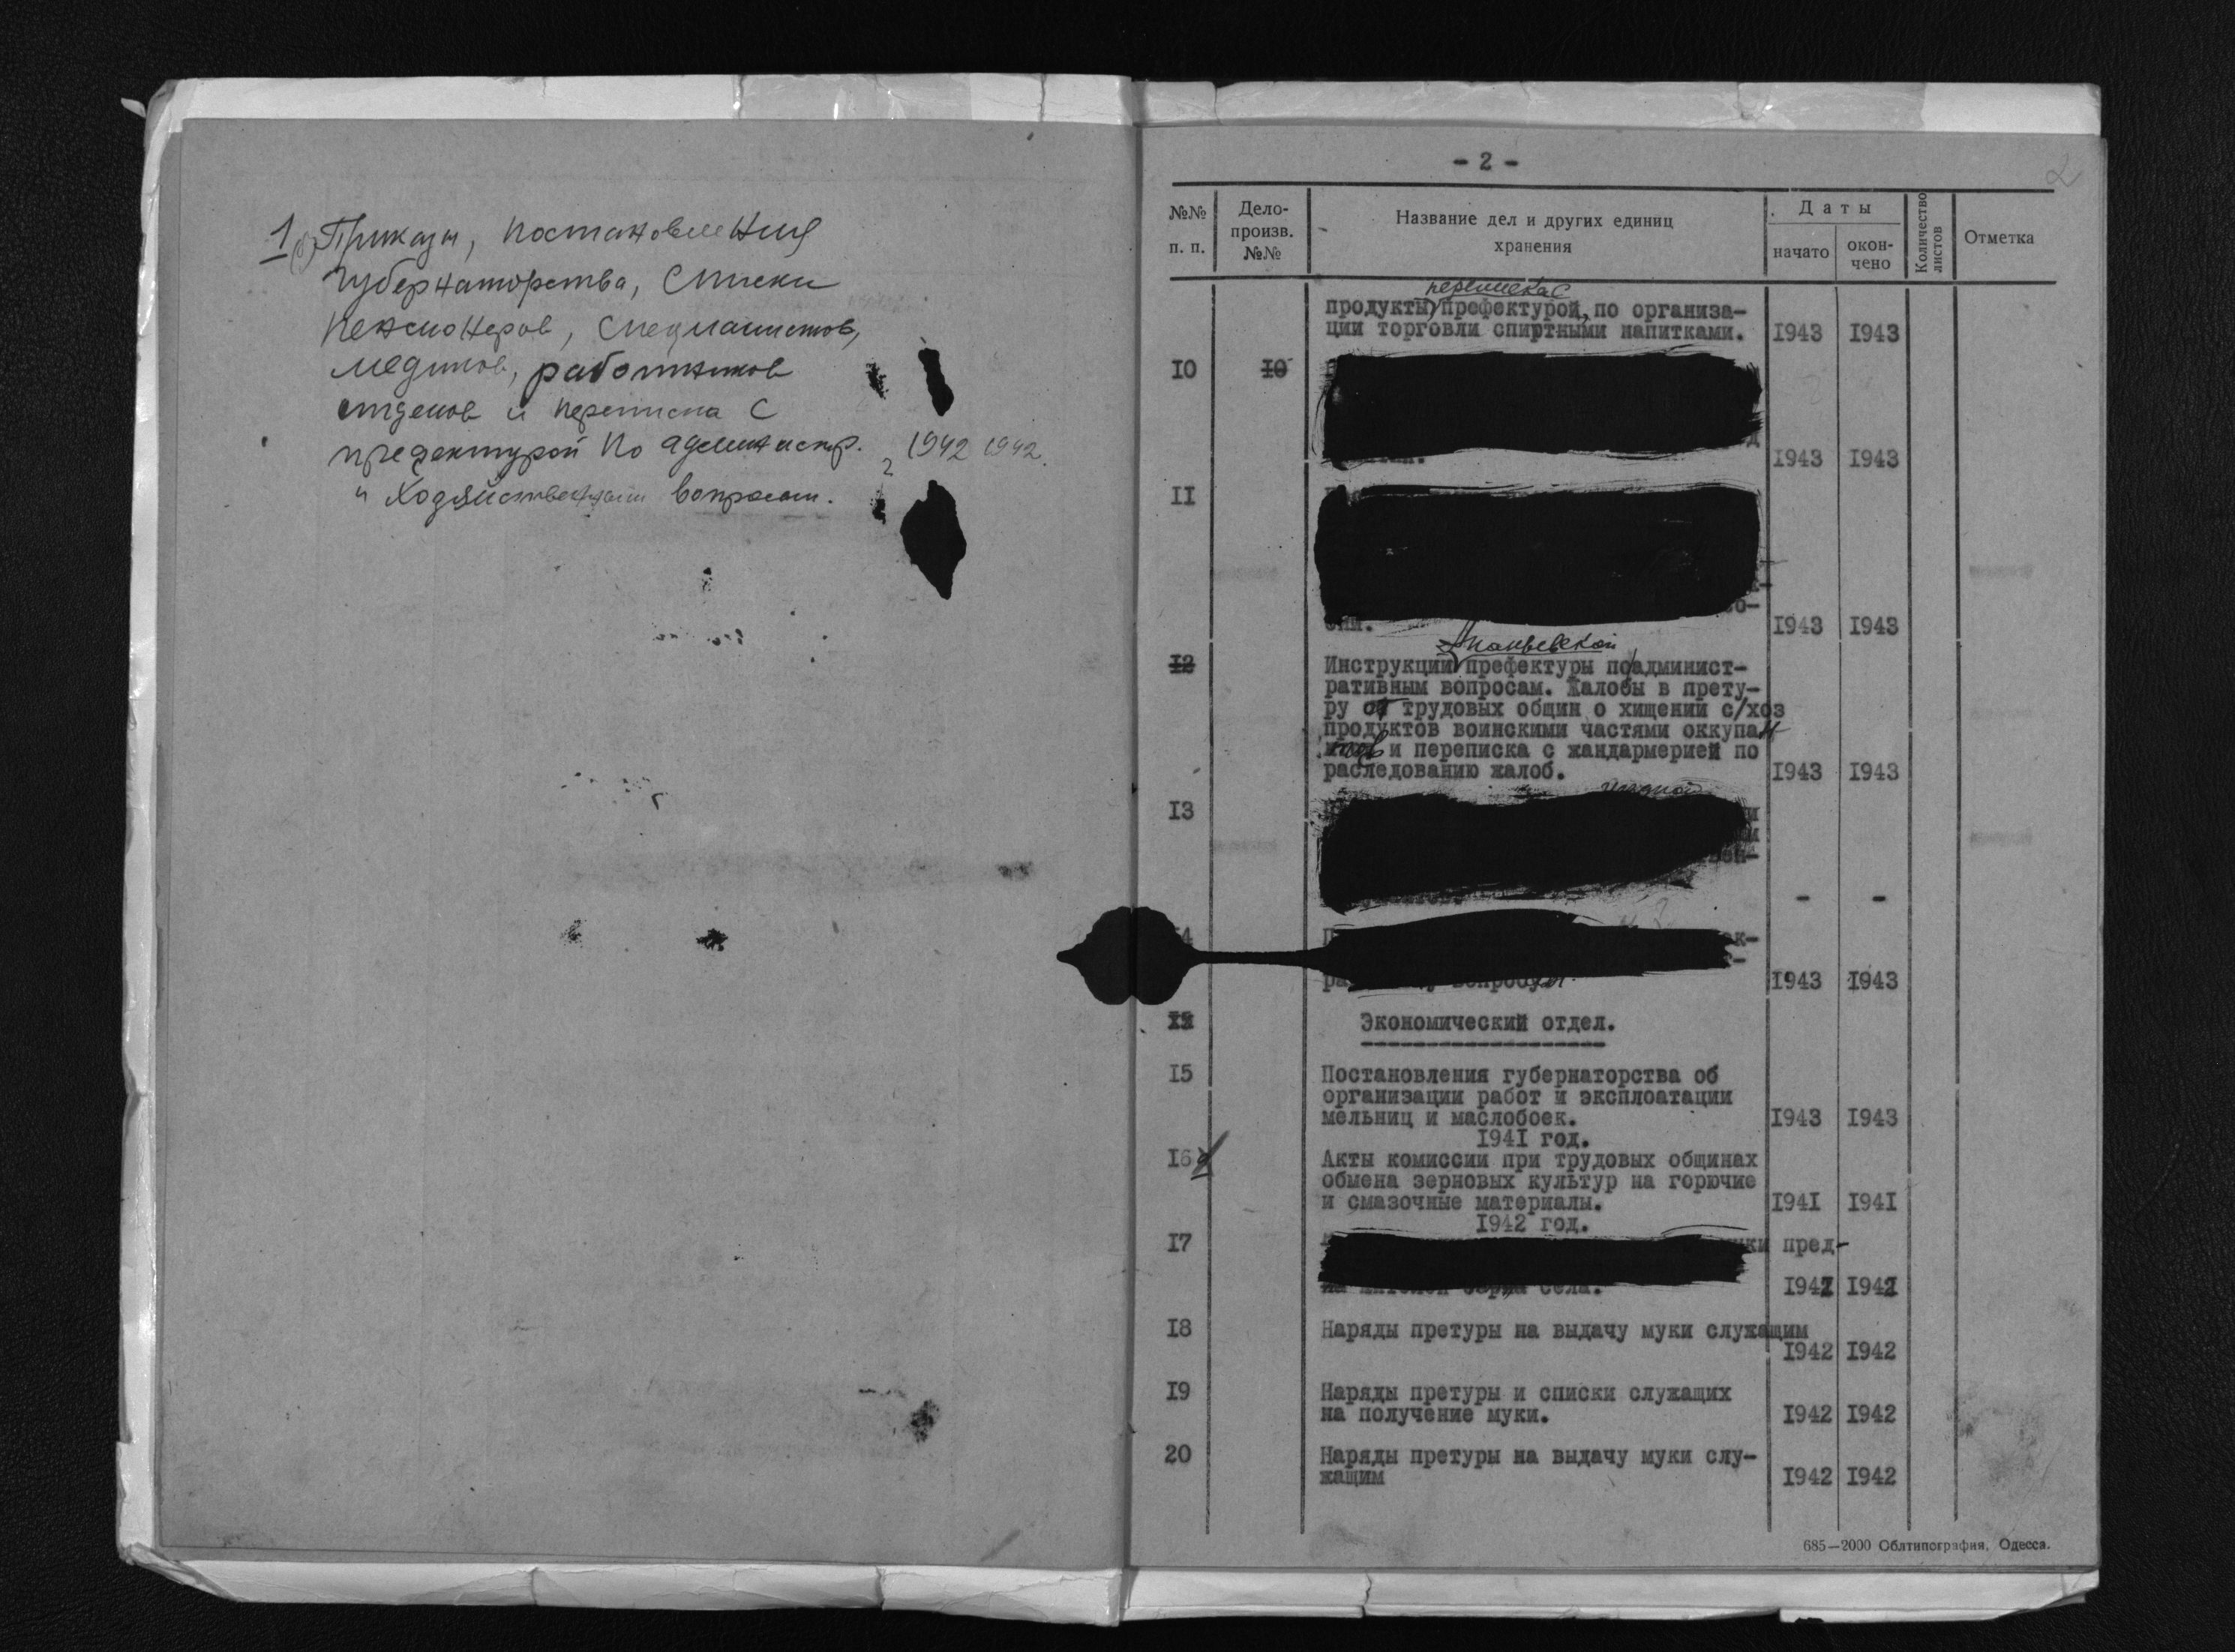 1 Приказы, постановления
губернаторства, списки
пенсионеров, специалистов,
медиков, работников
отделов и переписка с
префектурой по администр.
1942 1942.
и хозяйственным вопросам.
- 2 -
2
№№ п. п.
Дело-произв. №№
Название дел и других единиц хранения
Даты
начато
окон-чено
Количество листов
Отметка
переписка с
продукты, префектурой, по организа-
ции торговли спиртными напитками. 1943 1943
10 10
1943 1943
11
1943 1943
Ананьевской
12 Инструкции префектуры по админист-
ративным вопросам. Жалобы в прету-
ру от трудовых общин о хищении с/хоз
продуктов воинскими частями оккупан
тов и переписка с жандармерией по
раследованию жалоб. 1943 1943
13
- -
1943 1943
Экономический отдел.
15 Постановления губернаторства об
организации работ и эксплоатации
мельниц и маслобоек. 1943 1943
1941 год.
16 Акты комиссии при трудовых общинах
обмена зерновых культур на горючие
и смазочные материалы. 1941 1941
1942 год.
17 пред-
села. 1942 1942
18 Наряды претуры на выдачу муки служащим
1942 1942
19 Наряды претуры и списки служащих
на получение муки. 1942 1942
20 Наряды претуры на выдачу муки слу-
жащим 1942 1942
685—2000 Облтипография, Одесса.